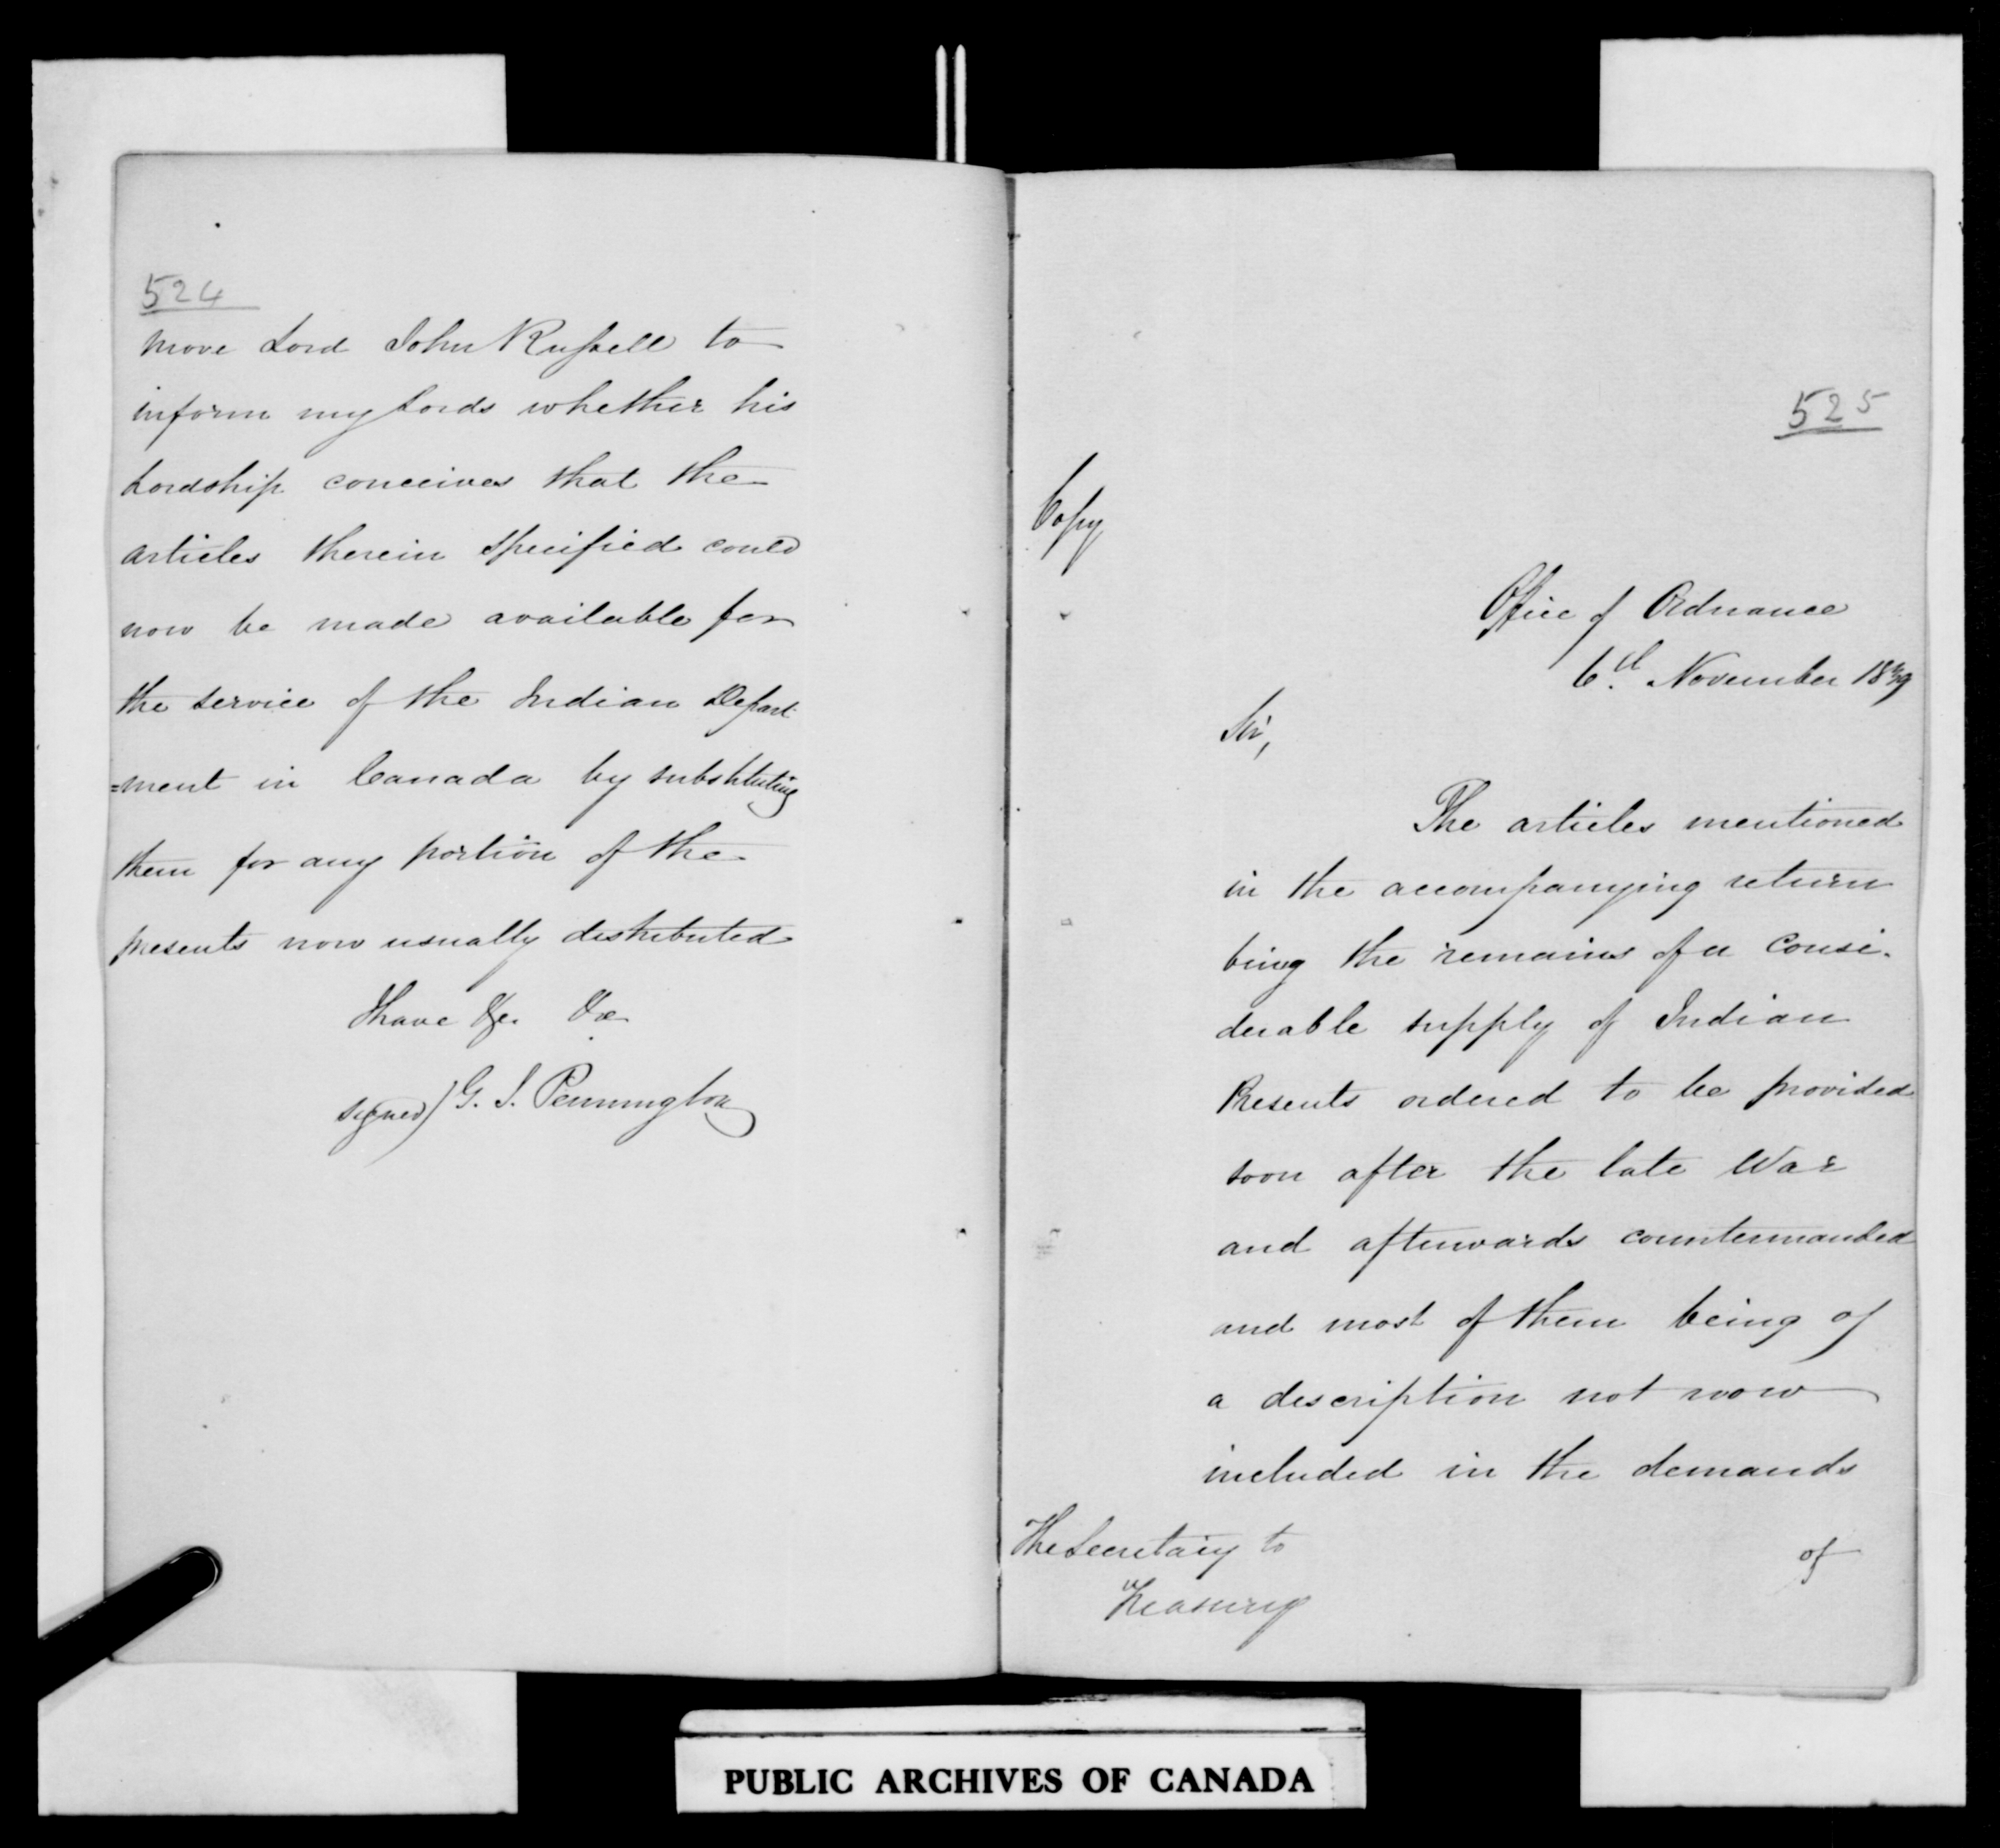 524
move Lord John Russell to
inform my Lords whether his
Lordship conceives that the
articles therein specified could
now be made available for
the service of the Indian Depart
=ment in Canada by substituting
them for any portion of the
presents now usually distributed
I have &c. &c.
signed) G. I. Pennington
525
Copy
Office of Ordnance
6th November 1839
Sir,
The articles mentioned
in the accompanying return
being the remains of a consi-
derable supply of Indian
Presents ordered to be provided
soon after the late War
and afterwards countermanded
and most of them being of
a description not now
included in the demands
The Secretary to
Treasury
of
PUBLIC ARCHIVES OF CANADA